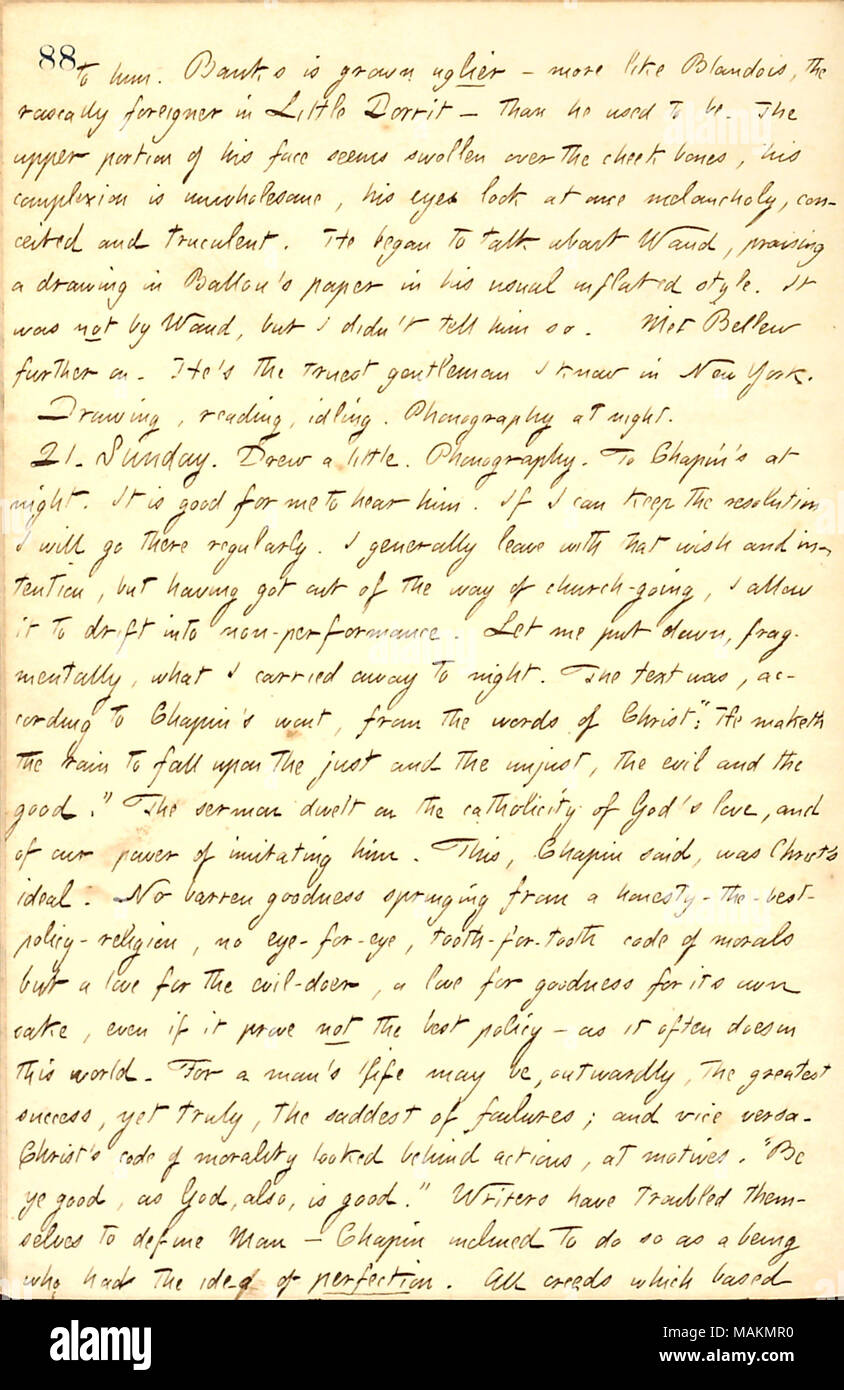 88
to him. Banks is grown uglier — more like Blandois, the
rascally foreigner in Little Dorrit — than he used to be. The
upper portion of his face seems swollen over the cheek bones, his
complexion is unwholesome, his eyes look at once melancholy, con-
ceited and truculent. He began to talk about Waud, praising
a drawing in Ballou's paper in his usual inflated style. It
was not by Waud, but I didn't tell him so. Met Bellew
further on. He's the truest gentleman I know in New York.
Drawing, reading, idling. Phonography at night.
21. Sunday. Drew a little. Phonography. To Chapin's at
night. It is good for me to hear him. If I can keep the resolution
I will go there regularly. I generally leave with that wish and in-
tention, but having got out of the way of church-going, I allow
it to drift into non-performance. Let me put down, frag-
mentally, what I carried away to night. The text was, ac-
cording to Chapin's wont, from the words of Christ: "He maketh
the rain to fall upon the just and the unjust, the evil and the
good." The sermon dwelt on the catholicity of God's love, and
of our power of imitating him. This, Chapin said, was Christ's
ideal. No barren goodness springing from a honesty-the-best-
policy-religion, no eye-for-eye, tooth-for-tooth code of morals
but a love for the evil-doer, a love for goodness for its own
sake, even if it prove not the best policy — as it often does on
this world. For a man's life may be, outwardly, the greatest
success, yet truly, the saddest of failures; and vice versa.
Christ's code of morality looked behind actions, at motives. "Be
ye good, as God, also, is good." Writers have troubled them-
selves to define Man — Chapin inclined to do so as a being
who had the idea of perfection. All creeds which based
alamy
Image ID: MAKMR0
www.alamy.com